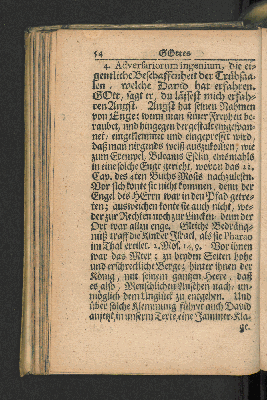 54 GOttes
4. Adversariorum ingenium, die ei-
gentliche Beschaffenheit der Trübsa-
len, welche David hat erfahren.
GOtt, sagt er, du lässest mich erfah-
ren Angst. Angst hat seinen Nahmen
von Enge; wenn man seiner Freyheit be-
raubet, und hingegen dergestalt eingespan-
net, eingeklemmet und eingepresset wird,
daß man nirgends weiß auszukommen, wie
zum Exempel, Bileams Eselin einsmahls
in eine solche Enge gerieht, wovon das 22.
Cap. des 4ten Buchs Mosis nachzulesen.
Vor sich konte sie nicht kommen, denn der
Engel des HErrn war in den Pfad getre-
ten; ausweichen konte sie auch nicht, we-
der zur Rechten noch zur Lincken, denn der
Ort war allzu enge. Gleiche Bedräng-
niß traff die Kinder Israel, als sie Pharao
im Thal ereilet. 2. Mos. 14, 9. Vor ihnen
war das Meer; zu beyden Seiten hohe
und erschreckliche Berge; hinter ihnen der
König, mit seinem gantzen Heere, daß
es also, Menschlichen Ansehen nach, un-
möglich dem Unglück zu entgehen. Und
über solche Klemmung führet auch David
anjetzt in unserm Texte eine Jammer-Kla-
ge.